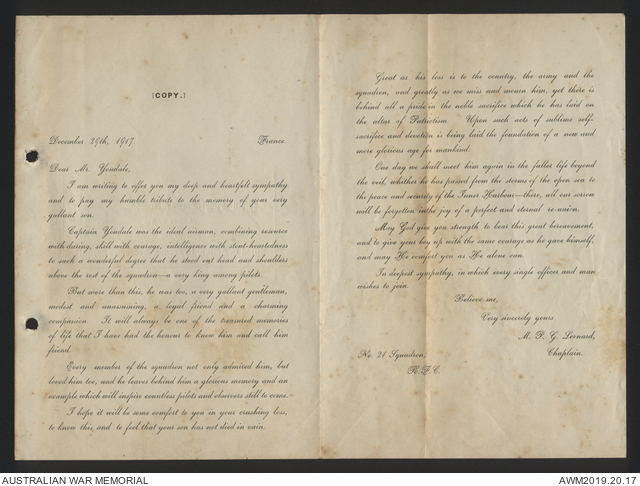 [COPY.]
December 29th, 1917.
France.
Dear Mr. Yondale,
I am writing to offer you my deep and heartfelt sympathy
and to pay my humble tribute to the memory of your very
gallant son.
Captain Yondale was the ideal airman, combining resource
with daring, skill with courage, intelligence with stout-heartedness
to such a wonderful degree that he stood out head and shoulders
above the rest of the squadron—a very king among pilots.
But more than this, he was too, a very gallant gentleman,
modest and unassuming, a loyal friend and a charming
companion. It will always be one of the treasured memories
of life that I have had the honour to know him and call him
friend.
Every member of the squadron not only admired him, but
loved him too, and he leaves behind him a glorious memory and an
example which will inspire countless pilots and observers still to come.
I hope it will be some comfort to you in your crushing loss,
to know this, and to feel that your son has not died in vain.
Great as his loss is to the country, the army and the
squadron, and greatly as we miss and mourn him, yet there is
behind all a pride in the noble sacrifice which he has laid on
the altar of Patriotism. Upon such acts of sublime self-
sacrifice and devotion is being laid the foundation of a new and
more glorious age for mankind.
One day we shall meet him again in the fuller life beyond
the veil, whither he has passed from the storms of the open sea to
the peace and security of the Inner Harbour—there, all our sorrow
will be forgotten in the joy of a perfect and eternal re-union.
May God give you strength to bear this great bereavement,
and to give your boy up with the same courage as he gave himself,
and may He comfort you as He alone can.
In deepest sympathy, in which every single officer and man
wishes to join.
Believe me,
Very sincerely yours
M. P. G. Leonard,
Chaplain.
No. 21 Squadron,
R.F.C.
AUSTRALIAN WAR MEMORIAL
AWM2019.20.17